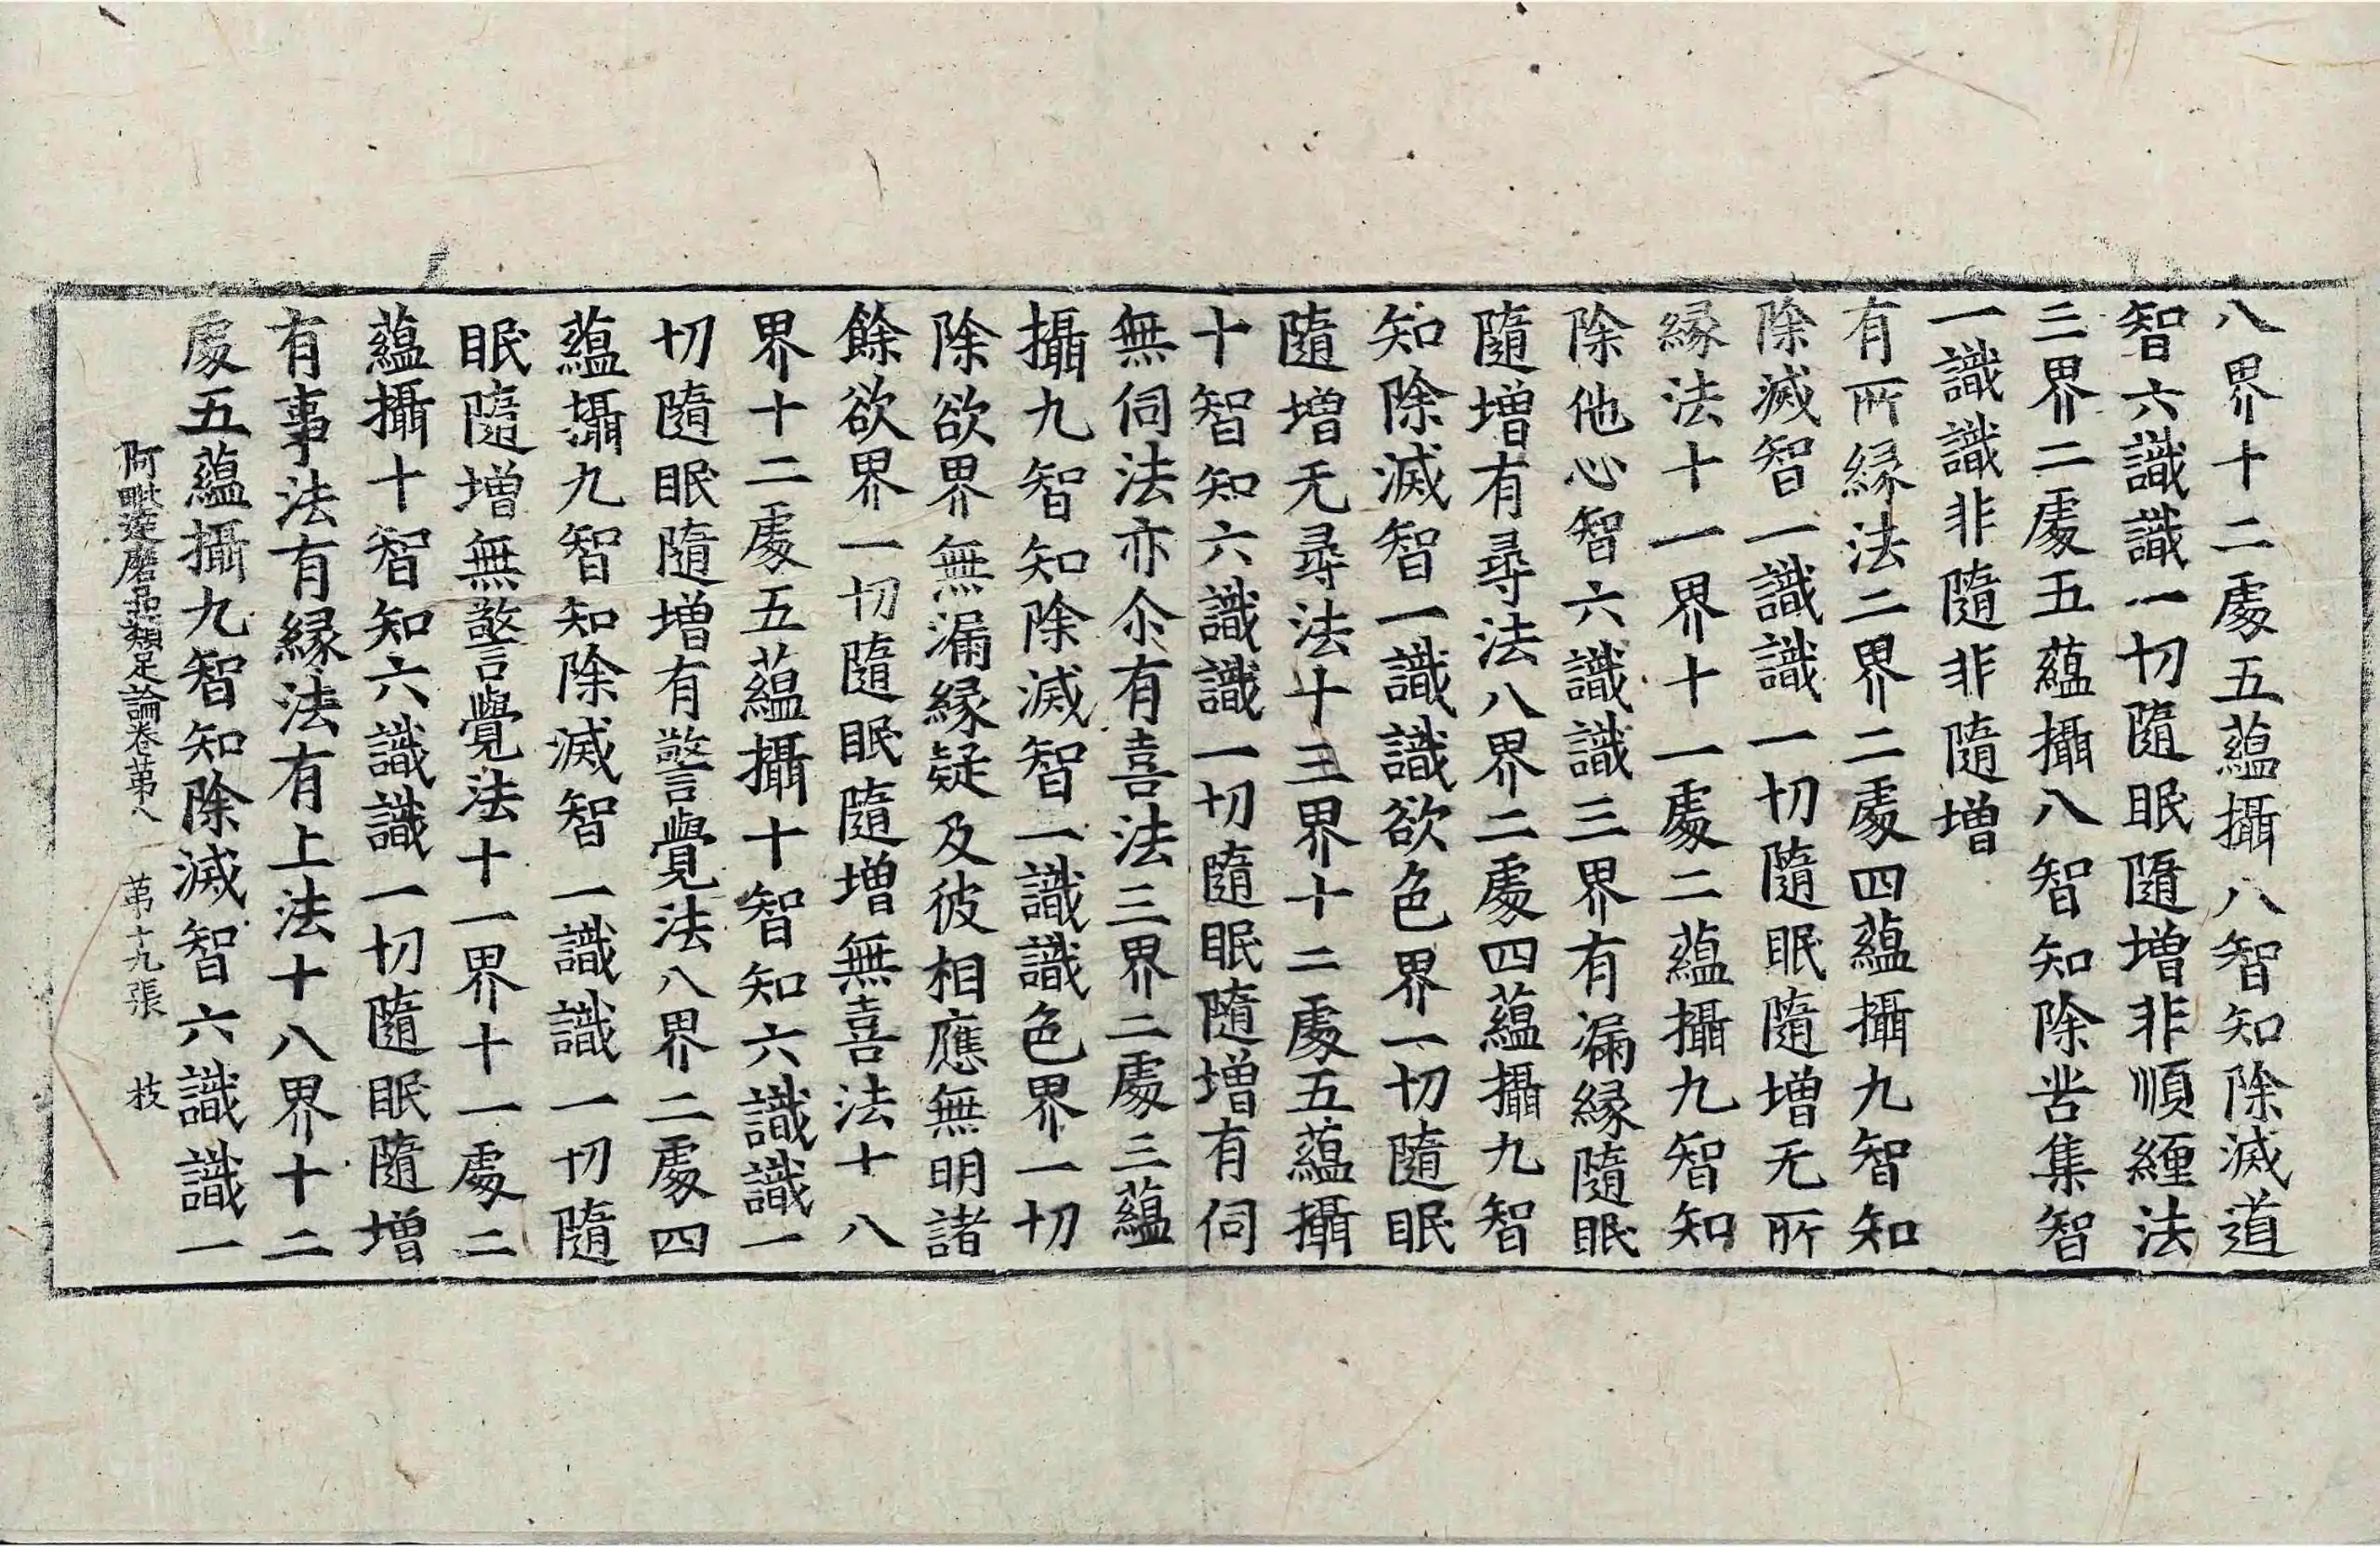 八界十二處五蘊攝八智知除滅道
智六識識一切隨眠隨增非順纏法
三界二處五蘊攝八智知除苦集智
一識識非隨非隨增
有所緣法二界二處四蘊攝九智知
除滅智一識識一切隨眠隨增无所
緣法十一界十一處二蘊攝九智知
除他心智六識識三界有漏緣隨眠
隨增有尋法八界二處四蘊攝九智
知除滅智一識識欲色界一切隨眠
隨增无尋法十三界十二處五蘊攝
十智知六識識一切隨眠隨增有伺
無伺法亦尒有喜法三界二處三蘊
攝九智知除滅智一識識色界一切
除欲界無漏緣疑及彼相應無明諸
餘欲界一切隨眠隨增無喜法十八
界十二處五蘊攝十智知六識識一
切隨眠隨增有警覺法八界二處四
蘊攝九智知除滅智一識識一切隨
眠隨增無警覺法十一界十一處二
蘊攝十智知六識識一切隨眠隨增
有事法有緣法有上法十八界十二
處五蘊攝九智知除滅智六識識一
阿毗達磨品類足論卷苐八 苐十九張 枝